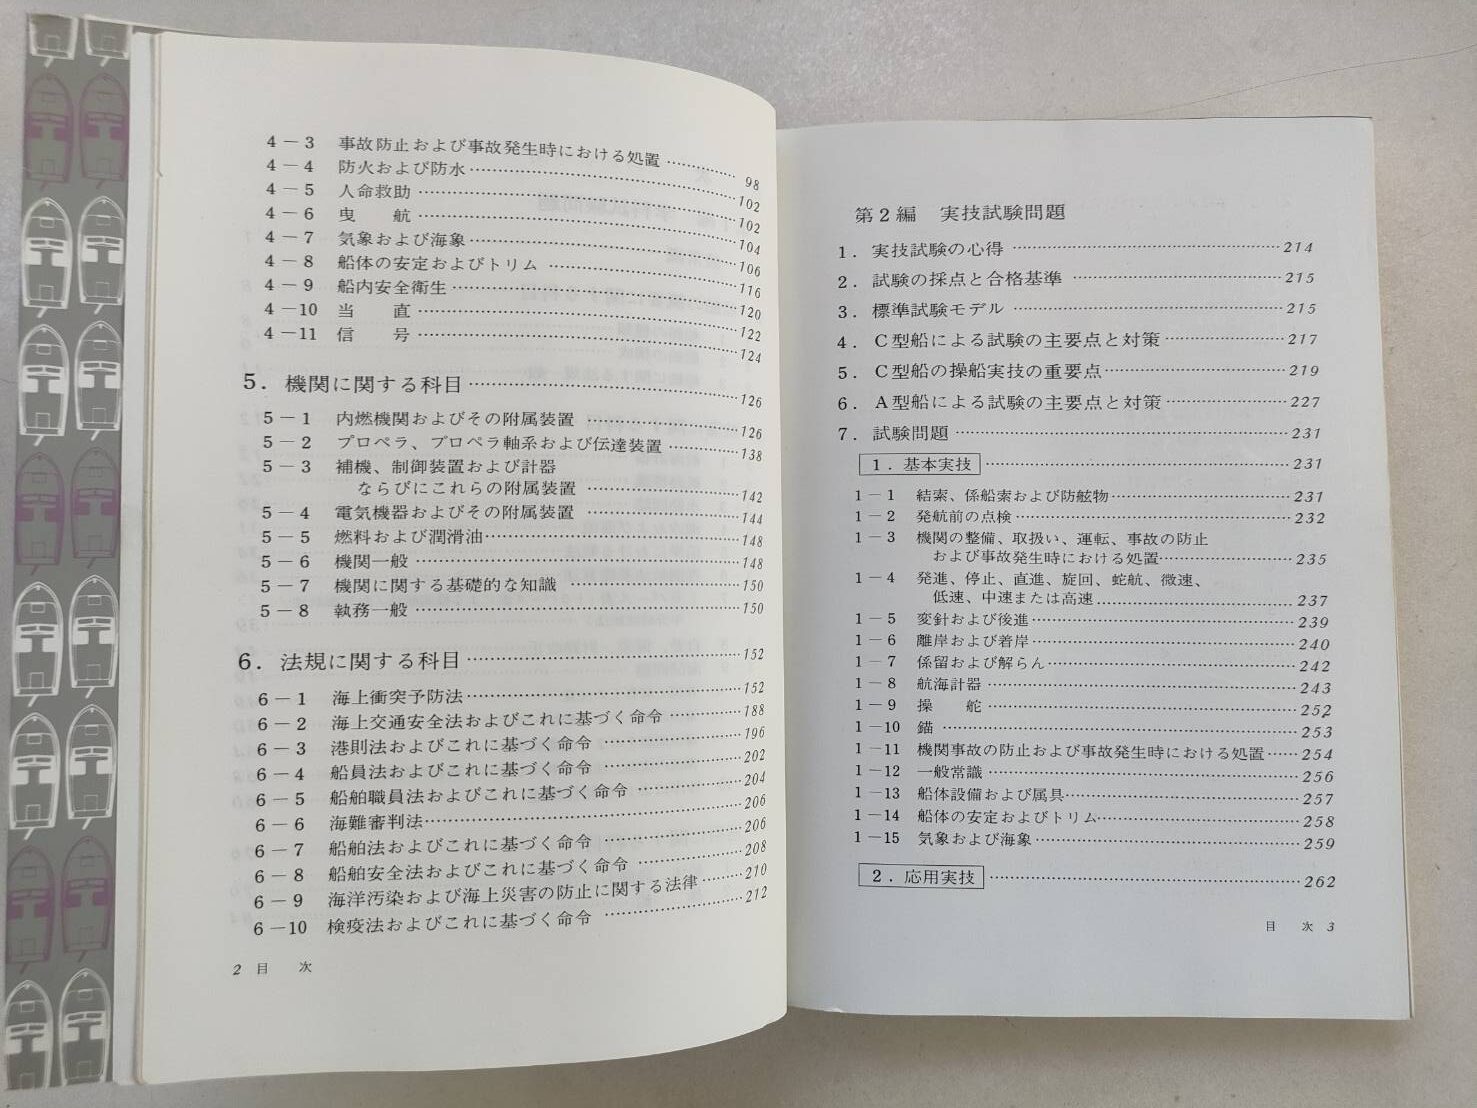 4－3 事故防止および事故発生時における処置 …… 98
4－4 防火および防水 …… 102
4－5 人命救助 …… 102
4－6 曳　航 …… 104
4－7 気象および海象 …… 106
4－8 船体の安定およびトリム …… 116
4－9 船内安全衛生 …… 120
4－10 当　直 …… 122
4－11 信　号 …… 124
5．機関に関する科目 …… 126
5－1 内燃機関およびその附属装置 …… 126
5－2 プロペラ、プロペラ軸系および伝達装置 …… 138
5－3 補機、制御装置および計器
ならびにこれらの附属装置 …… 142
5－4 電気機器およびその附属装置 …… 144
5－5 燃料および潤滑油 …… 148
5－6 機関一般 …… 148
5－7 機関に関する基礎的な知識 …… 150
5－8 執務一般 …… 150
6．法規に関する科目 …… 152
6－1 海上衝突予防法 …… 152
6－2 海上交通安全法およびこれに基づく命令 …… 188
6－3 港則法およびこれに基づく命令 …… 196
6－4 船員法およびこれに基づく命令 …… 202
6－5 船舶職員法およびこれに基づく命令 …… 204
6－6 海難審判法 …… 206
6－7 船舶法およびこれに基づく命令 …… 206
6－8 船舶安全法およびこれに基づく命令 …… 208
6－9 海洋汚染および海上災害の防止に関する法律 …… 210
6－10 検疫法およびこれに基づく命令 …… 212
2 目　次
第2編　実技試験問題
1．実技試験の心得 …… 214
2．試験の採点と合格基準 …… 215
3．標準試験モデル …… 215
4．C型船による試験の主要点と対策 …… 217
5．C型船の操船実技の重要点 …… 219
6．A型船による試験の主要点と対策 …… 227
7．試験問題 …… 231
1．基本実技 …… 231
1－1 結索、係船索および防舷物 …… 231
1－2 発航前の点検 …… 232
1－3 機関の整備、取扱い、運転、事故の防止
および事故発生時における処置 …… 235
1－4 発進、停止、直進、旋回、蛇航、微速、
低速、中速または高速 …… 237
1－5 変針および後進 …… 239
1－6 離岸および着岸 …… 240
1－7 係留および解らん …… 242
1－8 航海計器 …… 243
1－9 操　舵 …… 252
1－10 錨 …… 253
1－11 機関事故の防止および事故発生時における処置 …… 254
1－12 一般常識 …… 256
1－13 船体設備および属具 …… 257
1－14 船体の安定およびトリム …… 258
1－15 気象および海象 …… 259
2．応用実技 …… 262
目　次 3